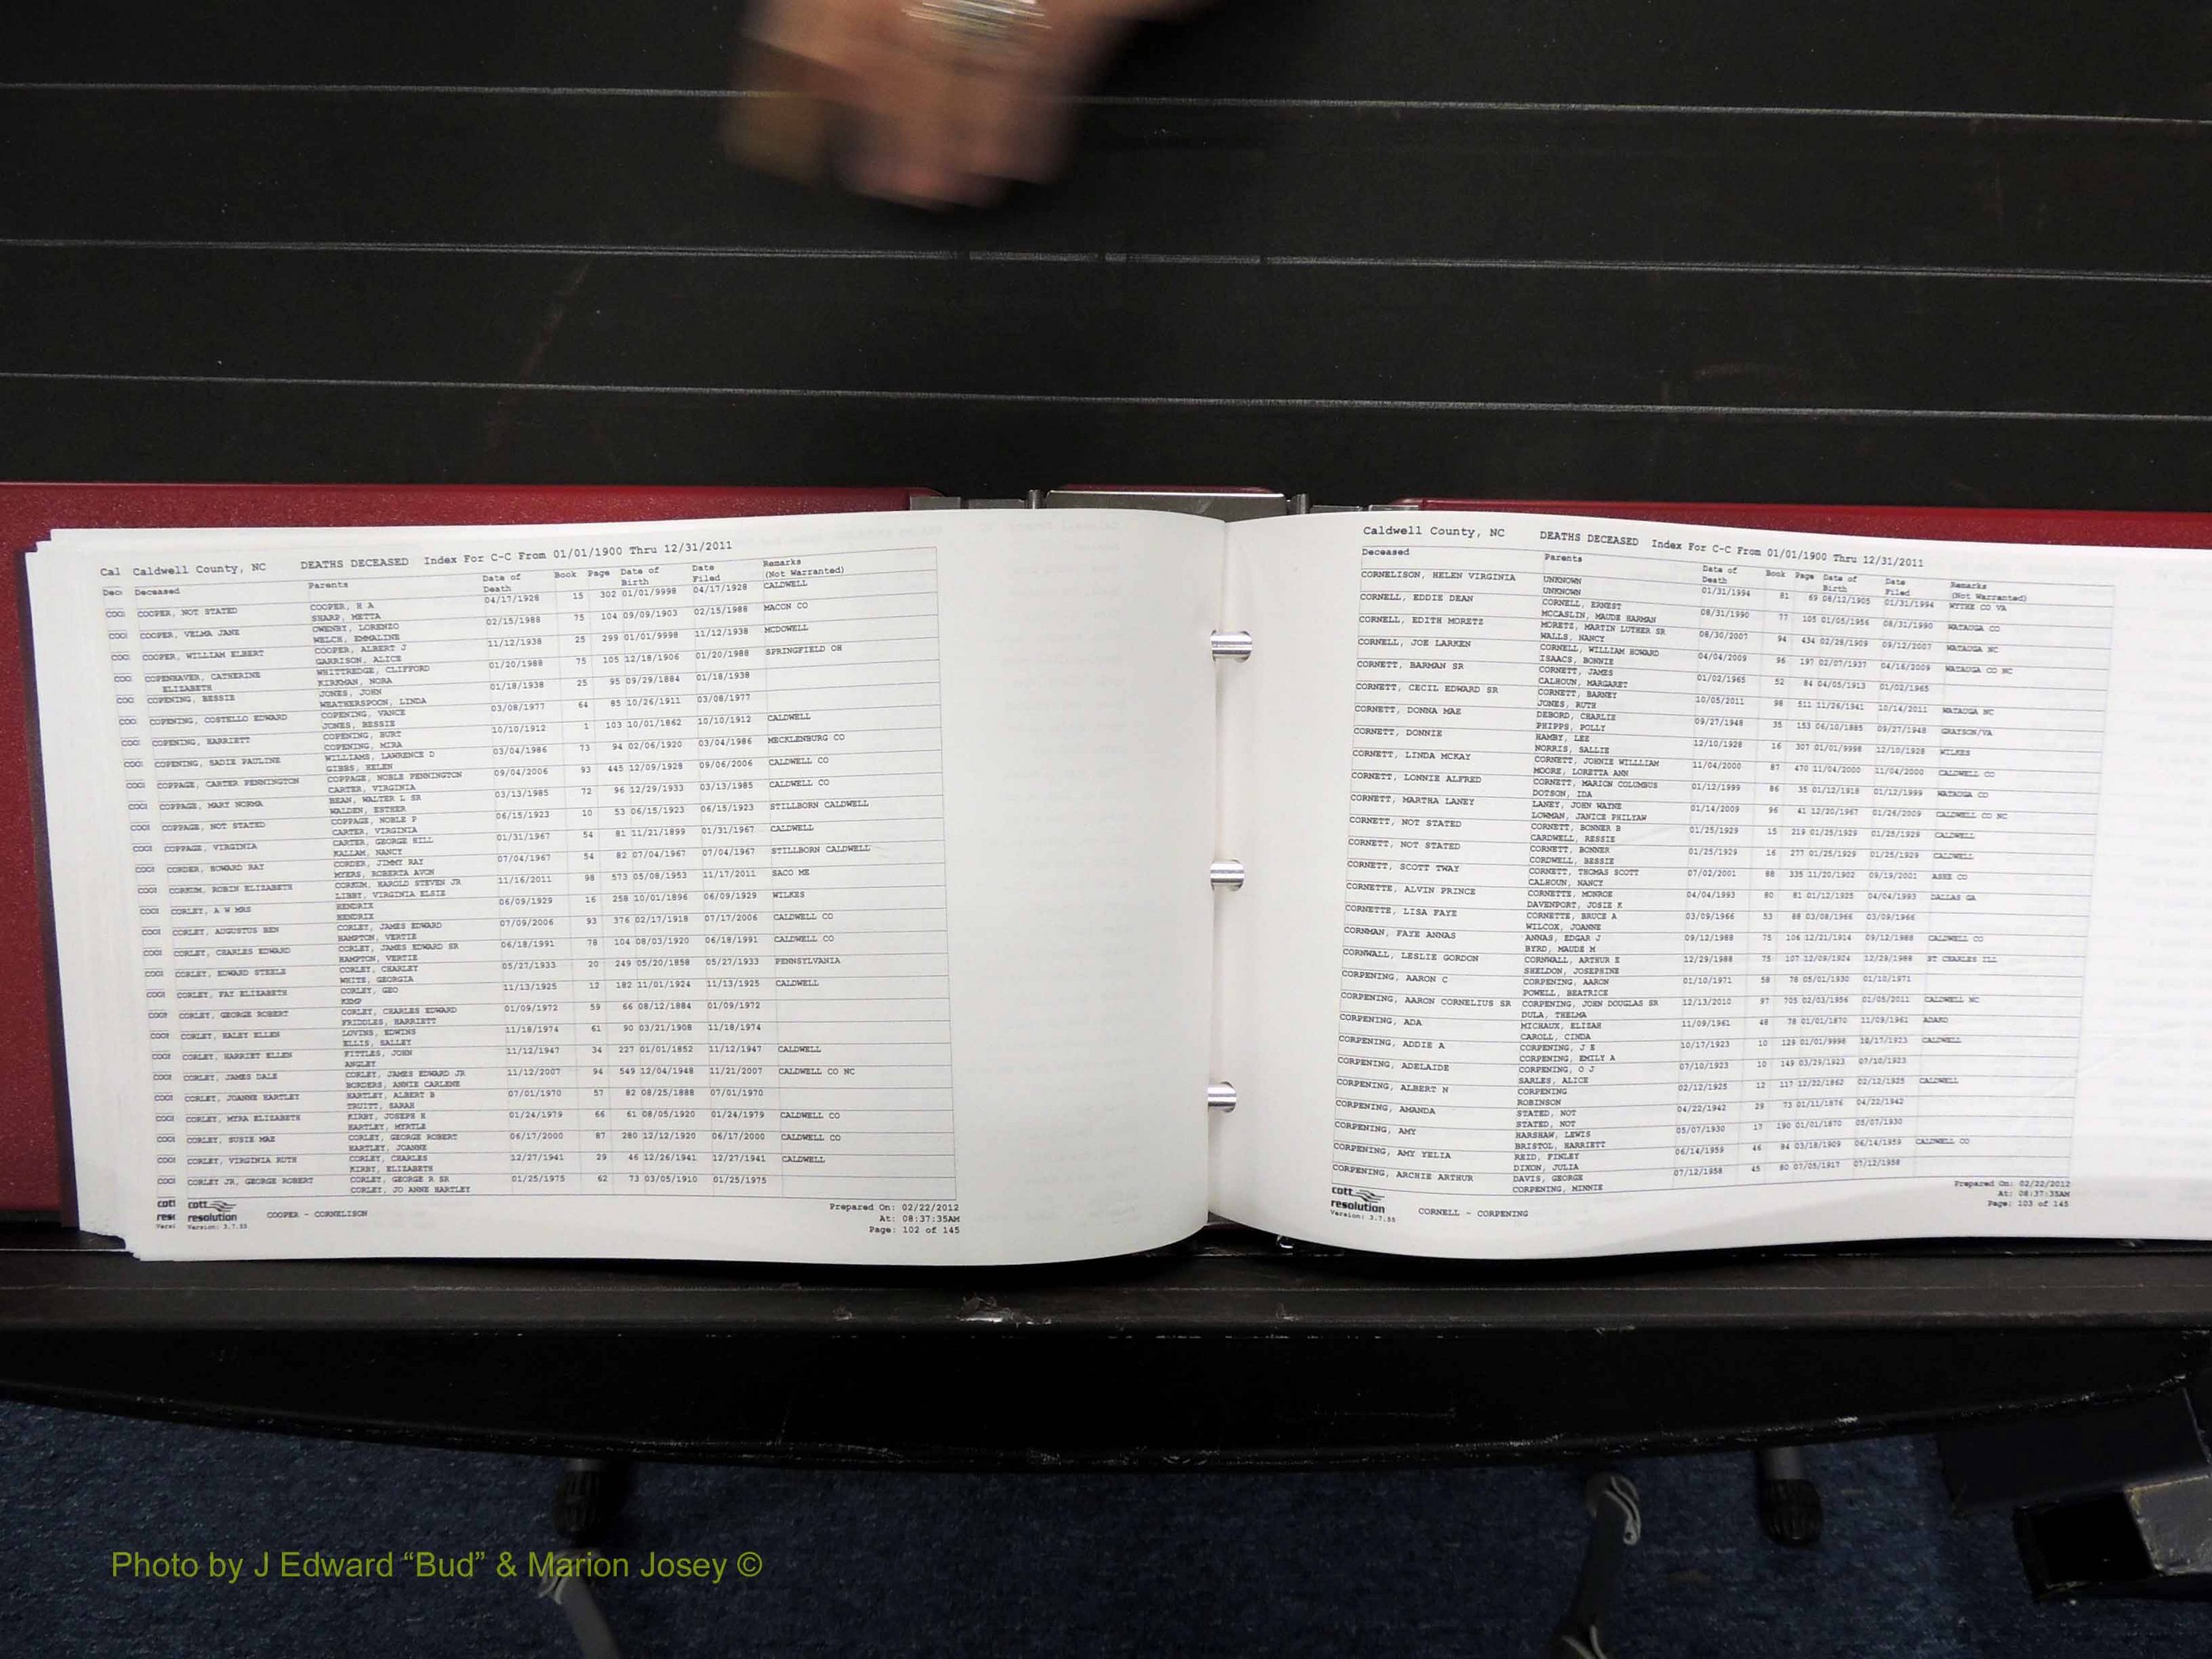 Cal Caldwell County, NC DEATHS DECEASED Index For C-C From 01/01/1900 Thru 12/31/2011
Deceased Parents Date of Death Book Page Date of Birth Date Filed Remarks (Not Warranted)
COOPER, NOT STATED COOPER, H A 04/17/1928 15 302 01/01/9998 04/17/1928 CALDWELL
SHARP, METTA
COOPER, VELMA JANE OWENBY, LORENZO 02/15/1988 75 104 09/09/1903 02/15/1988 MACON CO
WELCH, EMMALINE
COOPER, WILLIAM ELBERT COOPER, ALBERT J 11/12/1938 25 299 01/01/9998 11/12/1938 MCDOWELL
GARRISON, ALICE
COPENHAVER, CATHERINE ELIZABETH WHITTREDGE, CLIFFORD 01/20/1988 75 105 12/18/1906 01/20/1988 SPRINGFIELD OH
KIRKMAN, NORA
COPENING, BESSIE JONES, JOHN 01/18/1938 25 95 09/29/1884 01/18/1938
WEATHERSPOON, LINDA
COPENING, COSTELLO EDWARD COPENING, VANCE 03/08/1977 64 85 10/26/1911 03/08/1977
JONES, BESSIE
COPENING, HARRIETT COPENING, BURT 10/10/1912 1 103 10/01/1862 10/10/1912 CALDWELL
COPENING, MIRA
COPENING, SADIE PAULINE WILLIAMS, LAWRENCE D 03/04/1986 73 94 02/06/1920 03/04/1986 MECKLENBURG CO
GIBBS, HELEN
COPPAGE, CARTER PENNINGTON COPPAGE, NOBLE PENNINGTON 09/04/2006 93 445 12/09/1928 09/06/2006 CALDWELL CO
CARTER, VIRGINIA
COPPAGE, MARY NORMA BEAN, WALTER L SR 03/13/1985 72 96 12/29/1933 03/13/1985 CALDWELL CO
WALDEN, ESTHER
COPPAGE, NOT STATED COPPAGE, NOBLE P 06/15/1923 10 53 06/15/1923 06/15/1923 STILLBORN CALDWELL
CARTER, VIRGINIA
COPPAGE, VIRGINIA CARTER, GEORGE HILL 01/31/1967 54 81 11/21/1899 01/31/1967 CALDWELL
KALLAM, NANCY
CORDER, HOWARD RAY CORDER, JIMMY RAY 07/04/1967 54 82 07/04/1967 07/04/1967 STILLBORN CALDWELL
MYERS, ROBERTA AVON
CORKUM, ROBIN ELIZABETH CORKUM, HAROLD STEVEN JR 11/16/2011 98 573 05/08/1953 11/17/2011 SACO ME
LIBBY, VIRGINIA ELSIE
CORLEY, A W MRS HENDRIX 06/09/1929 16 258 10/01/1896 06/09/1929 WILKES
HENDRIX
CORLEY, AUGUSTUS BEN CORLEY, JAMES EDWARD 07/09/2006 93 376 02/17/1918 07/17/2006 CALDWELL CO
HAMPTON, VERTIE
CORLEY, CHARLES EDWARD CORLEY, JAMES EDWARD SR 06/18/1991 78 104 08/03/1920 06/18/1991 CALDWELL CO
HAMPTON, VERTIE
CORLEY, EDWARD STEELE CORLEY, CHARLEY 05/27/1933 20 249 05/20/1858 05/27/1933 PENNSYLVANIA
WHITE, GEORGIA
CORLEY, FAY ELIZABETH CORLEY, GEO 11/13/1925 12 182 11/01/1924 11/13/1925 CALDWELL
KEMP
CORLEY, GEORGE ROBERT CORLEY, CHARLES EDWARD 01/09/1972 59 66 08/12/1884 01/09/1972
FRIDDLES, HARRIETT
CORLEY, HALEY ELLEN LOVINS, EDWINS 11/18/1974 61 90 03/21/1908 11/18/1974
ELLIS, SALLEY
CORLEY, HARRIET ELLEN FITTLES, JOHN 11/12/1947 34 227 01/01/1852 11/12/1947 CALDWELL
ANGLEY
CORLEY, JAMES DALE CORLEY, JAMES EDWARD JR 11/12/2007 94 549 12/04/1948 11/21/2007 CALDWELL CO NC
BORDERS, ANNIE CARLENE
CORLEY, JOANNE HARTLEY HARTLEY, ALBERT B 07/01/1970 57 82 08/25/1888 07/01/1970
TRUITT, SARAH
CORLEY, MYRA ELIZABETH KIRBY, JOSEPH H 01/24/1979 66 61 08/05/1920 01/24/1979 CALDWELL CO
HARTLEY, MYRTLE
CORLEY, SUSIE MAE CORLEY, GEORGE ROBERT 06/17/2000 87 280 12/12/1920 06/17/2000 CALDWELL CO
HARTLEY, JOANNE
CORLEY, VIRGINIA RUTH CORLEY, CHARLES 12/27/1941 29 46 12/26/1941 12/27/1941 CALDWELL
KIRBY, ELIZABETH
CORLEY JR, GEORGE ROBERT CORLEY, GEORGE R SR 01/25/1975 62 73 03/05/1910 01/25/1975
CORLEY, JO ANNE HARTLEY
cott
resolution COOPER - CORNELISON
Version: 3.7.55
Prepared On: 02/22/2012
At: 08:37:35AM
Page: 102 of 145
Caldwell County, NC DEATHS DECEASED Index For C-C From 01/01/1900 Thru 12/31/2011
Deceased Parents Date of Death Book Page Date of Birth Date Filed Remarks (Not Warranted)
CORNELISON, HELEN VIRGINIA UNKNOWN 01/31/1994 81 69 08/12/1905 01/31/1994 WYTHE CO VA
UNKNOWN
CORNELL, EDDIE DEAN CORNELL, ERNEST 08/31/1990 77 105 01/05/1956 08/31/1990 WATAUGA CO
MCCASLIN, MAUDE HARMAN
CORNELL, EDITH MORETZ MORETZ, MARTIN LUTHER SR 08/30/2007 94 434 02/28/1909 09/12/2007 WATAUGA NC
WALLS, NANCY
CORNELL, JOE LARKEN CORNELL, WILLIAM HOWARD 04/04/2009 96 197 02/07/1937 04/16/2009 WATAUGA CO NC
ISAACS, BONNIE
CORNETT, BARMAN SR CORNETT, JAMES 01/02/1965 52 84 04/05/1913 01/02/1965
CALHOUN, MARGARET
CORNETT, CECIL EDWARD SR CORNETT, BARNEY 10/05/2011 98 511 11/26/1941 10/14/2011 WATAUGA NC
JONES, RUTH
CORNETT, DONNA MAE DEBORD, CHARLIE 09/27/1948 35 153 06/10/1885 09/27/1948 GRAYSON/VA
PHIPPS, POLLY
CORNETT, DONNIE HAMBY, LEE 12/10/1928 16 307 01/01/9998 12/10/1928 WILKES
NORRIS, SALLIE
CORNETT, LINDA MCKAY CORNETT, JOHNIE WILLLIAM 11/04/2000 87 470 11/04/2000 11/04/2000 CALDWELL CO
MOORE, LORETTA ANN
CORNETT, LONNIE ALFRED CORNETT, MARION COLUMBUS 01/12/1999 86 35 01/12/1918 01/12/1999 WATAUGA CO
DOTSON, IDA
CORNETT, MARTHA LANEY LANEY, JOHN WAYNE 01/14/2009 96 41 12/20/1967 01/26/2009 CALDWELL CO NC
LOWMAN, JANICE PHILYAW
CORNETT, NOT STATED CORNETT, BONNER B 01/25/1929 15 219 01/25/1929 01/25/1929 CALDWELL
CARDWELL, RESSIE
CORNETT, NOT STATED CORNETT, BONNER 01/25/1929 16 277 01/25/1929 01/25/1929 CALDWELL
CORDWELL, BESSIE
CORNETT, SCOTT TWAY CORNETT, THOMAS SCOTT 07/02/2001 88 335 11/20/1902 09/19/2001 ASHE CO
CALHOUN, NANCY
CORNETTE, ALVIN PRINCE CORNETTE, MONROE 04/04/1993 80 81 01/12/1925 04/04/1993 DALLAS GA
DAVENPORT, JOSIE K
CORNETTE, LISA FAYE CORNETTE, BRUCE A 03/09/1966 53 88 03/08/1966 03/09/1966
WILCOX, JOANNE
CORNMAN, FAYE ANNAS ANNAS, EDGAR J 09/12/1988 75 106 12/21/1914 09/12/1988 CALDWELL CO
BYRD, MAUDE M
CORNWALL, LESLIE GORDON CORNWALL, ARTHUR E 12/29/1988 75 107 12/09/1924 12/29/1988 ST CHARLES ILL
SHELDON, JOSEPHINE
CORPENING, AARON C CORPENING, AARON 01/10/1971 58 78 05/01/1930 01/10/1971
POWELL, BEATRICE
CORPENING, AARON CORNELIUS SR CORPENING, JOHN DOUGLAS SR 12/13/2010 97 705 02/03/1956 01/05/2011 CALDWELL NC
DULA, THELMA
CORPENING, ADA MICHAUX, ELIZAH 11/09/1961 48 78 01/01/1870 11/09/1961 ADAKO
CAROLL, CINDA
CORPENING, ADDIE A CORPENING, J E 10/17/1923 10 129 01/01/9998 10/17/1923 CALDWELL
CORPENING, EMILY A
CORPENING, ADELAIDE CORPENING, O J 07/10/1923 10 149 03/29/1923 07/10/1923
SARLES, ALICE
CORPENING, ALBERT N CORPENING 02/12/1925 12 117 12/22/1862 02/12/1925 CALDWELL
ROBINSON
CORPENING, AMANDA STATED, NOT 04/22/1942 29 73 01/11/1876 04/22/1942
STATED, NOT
CORPENING, AMY HARSHAW, LEWIS 05/07/1930 17 190 01/01/1870 05/07/1930
BRISTOL, HARRIETT
CORPENING, AMY YELIA REID, FINLEY 06/14/1959 46 84 03/18/1909 06/14/1959 CALDWELL CO
DIXON, JULIA
CORPENING, ARCHIE ARTHUR DAVIS, GEORGE 07/12/1958 45 80 07/05/1917 07/12/1958
CORPENING, MINNIE
cott
resolution CORNELL - CORPENING
Version: 3.7.55
Prepared On: 02/22/2012
At: 08:37:35AM
Page: 103 of 145
Photo by J Edward “Bud” & Marion Josey ©